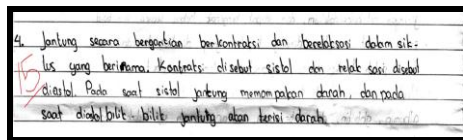 4. Jantung secara bergantian berkontraksi dan berelaksasi dalam sik-
lus yang berirama. Kontraksi disebut sistol dan relak sasi disebut
15 diastol. Pada saat sistol jantung memompakan darah, dan pada
saat diastol bilik - bilik jantung akan terisi darah.